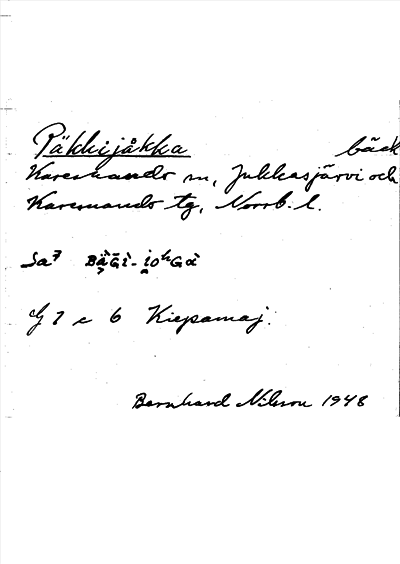 Päkkijåkka bäck
Karesuando sn, Jukkasjärvi och
Karesuando tg, Norrb. l.
Sa7
G 7 c 6 Kiepamaj.
Bernhard Nilsson 1948